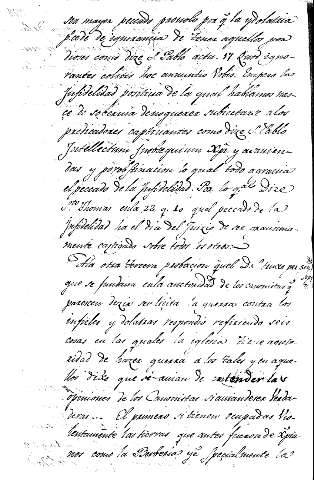 sea mayor peccado pruevolo por q̃ la ydolatria
puede de ygnorancia de tener aquellos por
dioses como dize S. Pablo actu. 17 Quod igno-
rantes colitis hoc annuncio Vobis. Empero la
Infidelidad positiva de la qual hablamos nas-
ce de sobervia de no querer subjectarse a los
predicadores captivantes como dize S. Pablo
Intellectum in obsequium Xp̃i y a sabien-
das y por obstinacion lo qual todo agravia
el peccado de la Infidelidad. Por lo q̃l dize
Sto Thomas en la 22 q. 10 qual peccado de la
Infidelidad ha el dia del Juizio de ser maxima-
mente castigado sobre todos los otros.
A la otra tercera probacion quel Dr
que se fundava en la auctoridad de los canonistas q̃
parescen dezir ser licita la guerra contra los
infieles y ydolatras respondio refiriendo seis
casos en las quales la iglesia tiene aucto-
ridad de hazer guerra a los tales y en aque-
llos dixo que se avian de entender las
opiniones de los Canonistas si avian de ser Verda-
deras... El primero si tienen ocupadas Vio-
lentamente las tierras que antes fueron de Xp̃ia-
nos como la Berberia y specialmente la